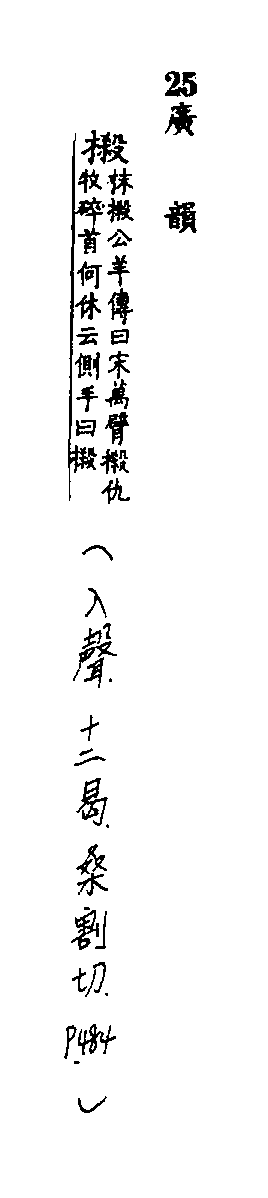 25廣韻
摋抹摋公羊傳曰宋萬臂摋仇
牧碎首何休云側手曰摋
(入聲.十二曷.桑割切.P.484)